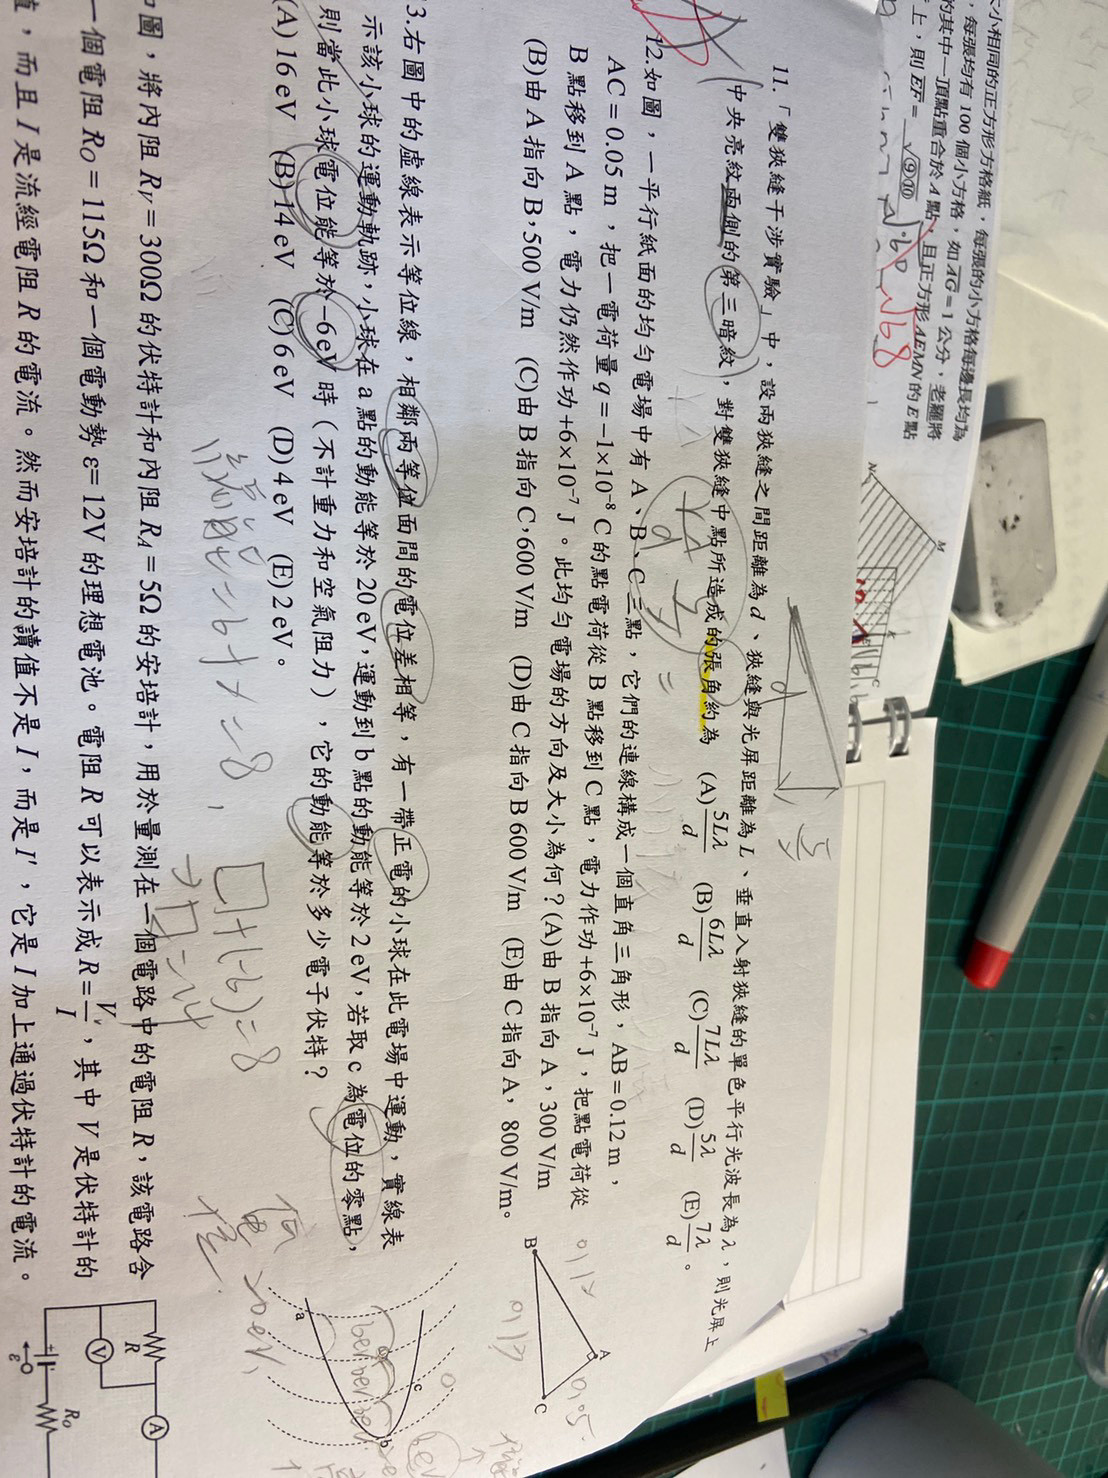 大小相同的正方形方格紙，每張的小方格每邊長均為
，每張均有 100 個小方格，如 AG = 1 公分，老羅將
的其中一頂點重合於 A 點，且正方形 AEMN 的 E 點
上，則 EF = √⑨⑩
11.「雙狹縫干涉實驗」中，設兩狹縫之間距離為 d、狹縫與光屏距離為 L、垂直入射狹縫的單色平行光波長為 λ，則光屏上
中央亮紋兩側的第三暗紋，對雙狹縫中點所造成的張角約為 (A) 5Lλ/d (B) 6Lλ/d (C) 7Lλ/d (D) 5λ/d (E) 7λ/d。
12.如圖，一平行紙面的均勻電場中有 A、B、C三點，它們的連線構成一個直角三角形，AB = 0.12 m，
AC = 0.05 m，把一電荷量 q = −1×10⁻⁸ C 的點電荷從 B 點移到 C 點，電力作功 +6×10⁻⁷ J，把點電荷從
B 點移到 A 點，電力仍然作功 +6×10⁻⁷ J。此均勻電場的方向及大小為何？(A)由 B 指向 A，300 V/m
(B)由 A 指向 B，500 V/m (C)由 B 指向 C，600 V/m (D)由 C 指向 B 600 V/m (E)由 C 指向 A，800 V/m。
B
A
C
3.右圖中的虛線表示等位線，相鄰兩等位面間的電位差相等，有一帶正電的小球在此電場中運動，實線表
示該小球的運動軌跡，小球在 a 點的動能等於 20 eV，運動到 b 點的動能等於 2 eV，若取 c 為電位的零點，
則當此小球電位能等於 −6 eV 時（不計重力和空氣阻力），它的動能等於多少電子伏特？
(A) 16 eV (B) 14 eV (C) 6 eV (D) 4 eV (E) 2 eV。
a
b
c
□+(-6)=8
→□=14
圖，將內阻 Rᵥ = 300Ω 的伏特計和內阻 R_A = 5Ω 的安培計，用於量測在一個電路中的電阻 R，該電路含
一個電阻 R₀ = 115Ω 和一個電動勢 ε = 12V 的理想電池。電阻 R 可以表示成 R = V/I，其中 V 是伏特計的
值，而且 I 是流經電阻 R 的電流。然而安培計的讀值不是 I，而是 I'，它是 I 加上通過伏特計的電流。
R
V
A
ε
R₀